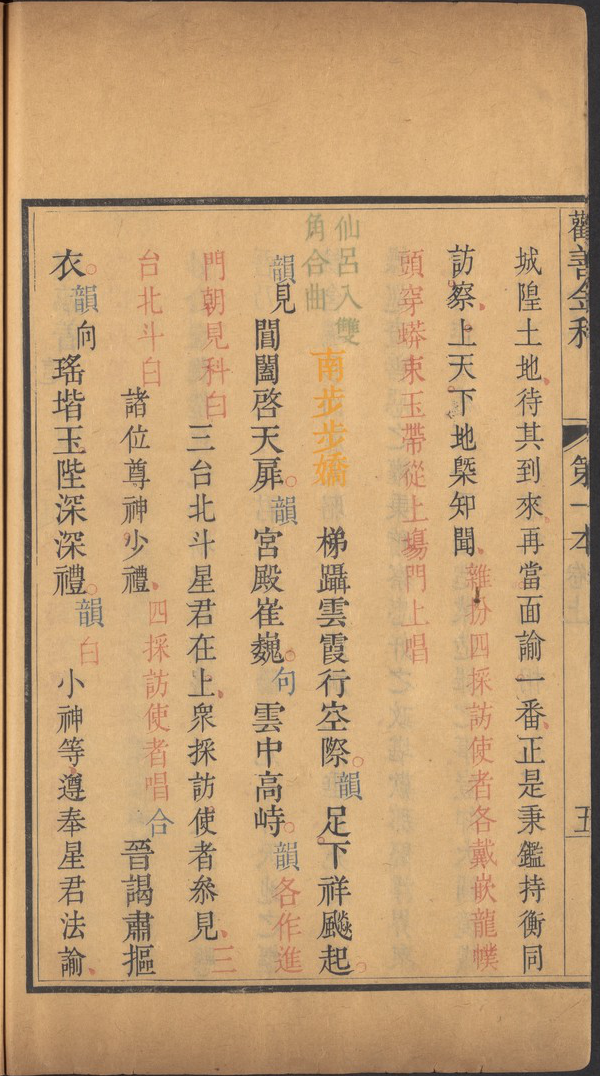 勸善金科 第一本卷上 五
城隍土地待其到來再當面諭一番正是秉鑑持衡同
訪察上天下地槩知聞雜扮四採訪使者各戴嵌龍幞
頭穿蟒束玉帶從上場門上唱
仙呂入雙
角合曲
南步步嬌
梯躡雲霞行空際韻足下祥飈起
韻見閶闔啓天扉韻宮殿崔巍句雲中高峙韻各作進
門朝見科白三台北斗星君在上衆採訪使者叅見三
台北斗白諸位尊神少禮四採訪使者唱合晉謁肅摳
衣韻向瑤堦玉陛深深禮韻白小神等遵奉星君法諭